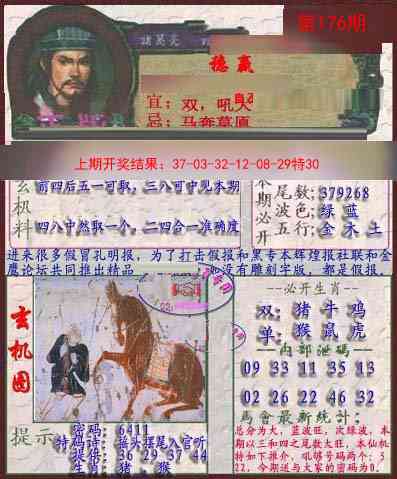 第176期
諸葛亮
穩贏
宜：双，吼天
忌：马奔草原
上期开奖结果：37-03-32-12-08-29特30
玄机料
前四后五一可取，三八可中见本期
四八中然取一个，二四合一准确度
本期必开
尾数：379268
波色：绿 蓝
五行：金 木 土
进来很多假冒孔明报，为了打击假报和黑专本辉煌报社联和金
鹰论坛共同推出精品
没有雕刻字版，都是假报，
玄机图
必开生肖
双：猪 牛 鸡
单：猴 鼠 虎
内部泄码
09 33 11 35 13
02 26 22 46 32
马會最新统计：
总分为大，蓝波旺，次绿波，本
期以三和四之尾数大旺，本仙机
特如下推介，吼够号码两个：5
22，今期送与大家的密码为0。
提示
密码：6411
特码诗：摇头摆尾入官听
提供：36 29 37 44
生肖：猪，猴